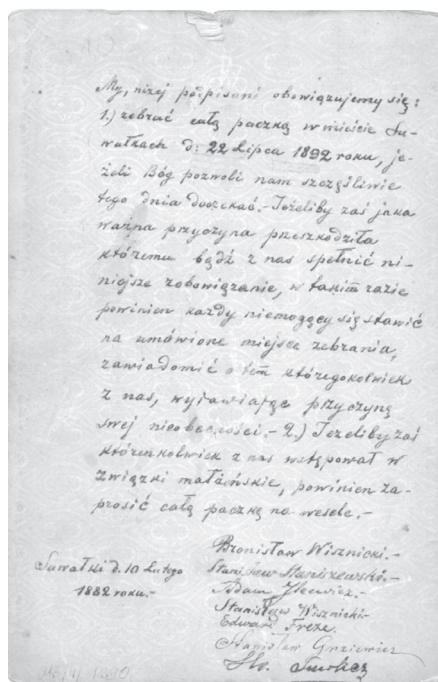 My, niżej podpisani obowiązujemy się:
1.) zebrać całą paczką w mieście Su-
wałkach d: 22 Lipca 1892 roku, je-
żeli Bóg pozwoli nam szczęśliwie
tego dnia doczekać.- Jeżeliby zaś jaka
ważna przyczyna przeszkodziła
któremu bądź z nas spełnić ni-
niejsze zobowiązanie, w takim razie
powinien każdy niemogący się stawić
na umówione miejsce zebrania,
zawiadomić o tém któregokolwiek
z nas, wyjawiając przyczynę
swej nieobecności.- 2.) Jeżeliby zaś
którenkolwiek z nas wstępował w
związki małżeńskie, powinien za-
prosić całą paczkę na wesele.-
Bronisław Wisznicki.-
Stanisław Staniszewski.-
Adam
Stanisław Wisznicki-
Edward Freze.
Stanisław
Suwałki d. 10 Lutego
1882 roku.-